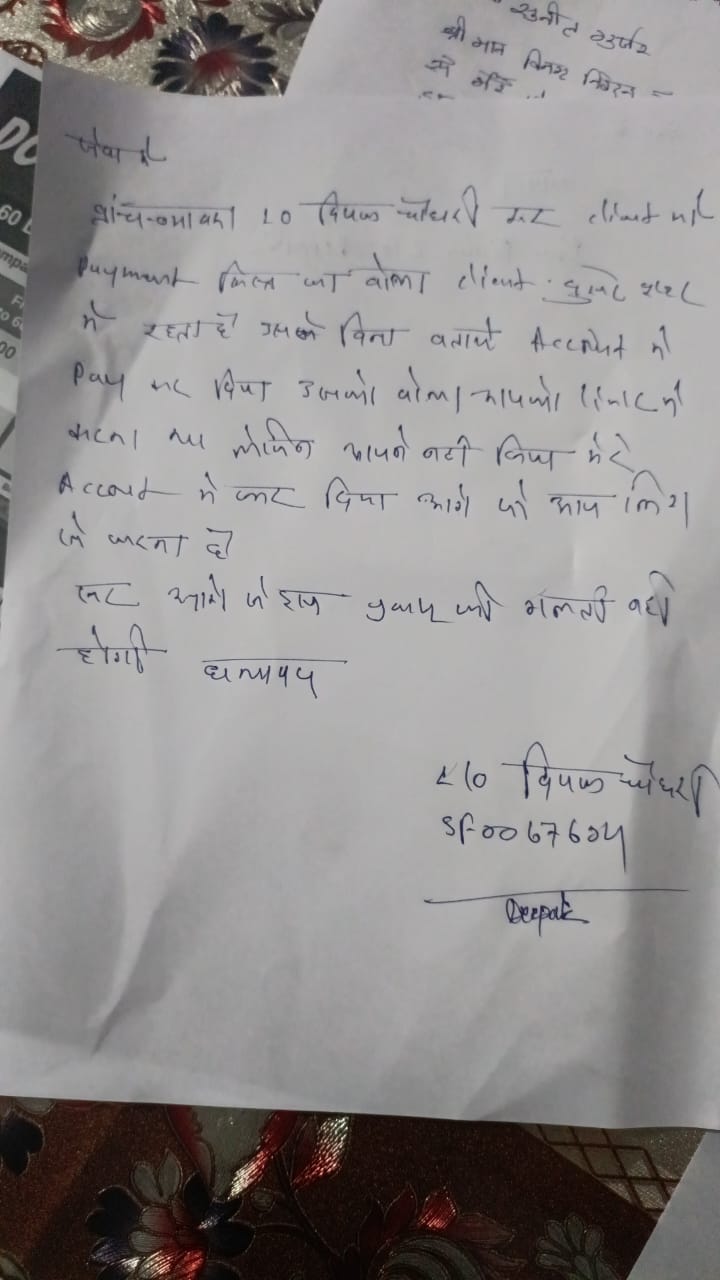 सुनीत गुर्जर
श्री मान विनम्र निवेदन
DO
60
00
सेवा में
ब्रांच 10 दिपक चौधरी सर client की
Payment किस्त का बोला client दुसरे शहर
मे रहता है उसको बिना बताये Account से
Pay कर दिया उसको बोला आपको
करना था लेकिन आपने नही किया मेरे
Account से काट दिया आगे जो आप
से करना है
सर आगे से इस प्रकार की गलती नही
होगी धन्यवाद
दिपक चौधरी
SF0067604
Deepak